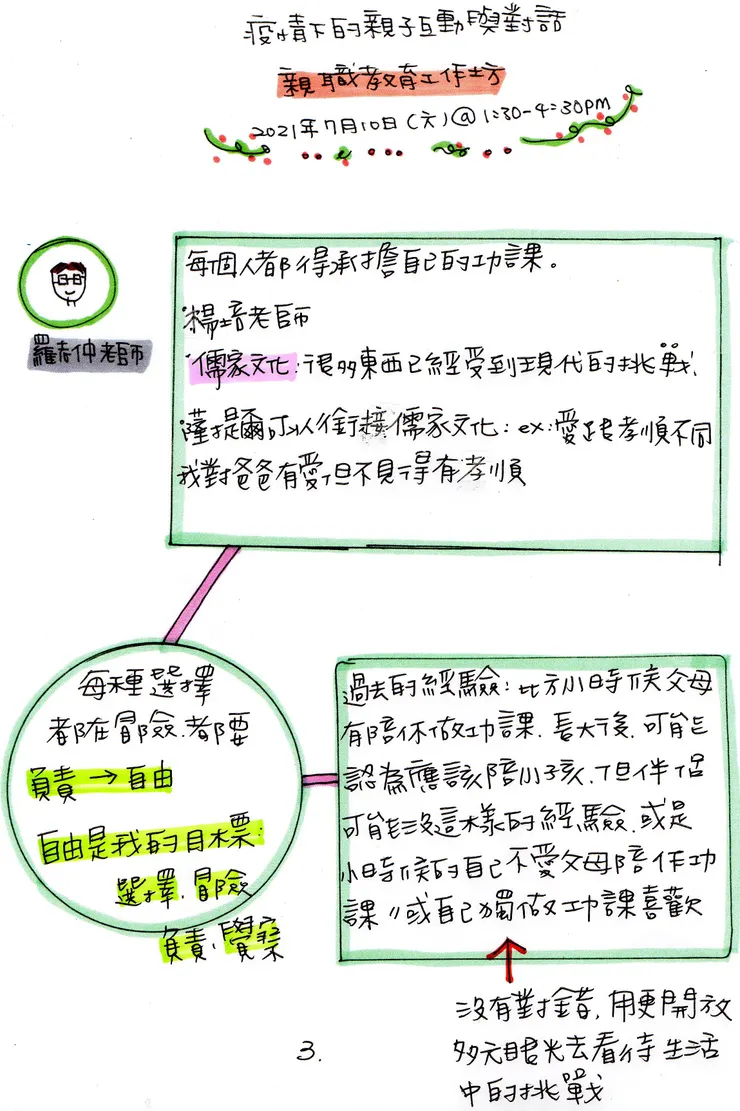 疫情下的親子互動與對話
親職教育工作坊
2021年7月10日(六)@1:30-4:30pm
羅志仲老師
每個人都得承擔自己的功課。
楊培老師
儒家文化:很多東西已經受到現代的挑戰.
薩提爾可以銜接儒家文化:ex:愛跟孝順不同
我對爸爸有愛但不見得有孝順
每種選擇
都在冒險.都要
負責→自由
自由是我的目標:
選擇.冒險
負責.覺察
過去的經驗:比方小時候父母
有陪你做功課.長大後.可能
認為應該陪小孩.但伴侶
可能沒這樣的經驗.或是
小時候的自己不愛父母陪作功
課//或自己獨做功課喜歡
沒有對錯.用更開放
多元眼光去看待生活
中的挑戰
3.